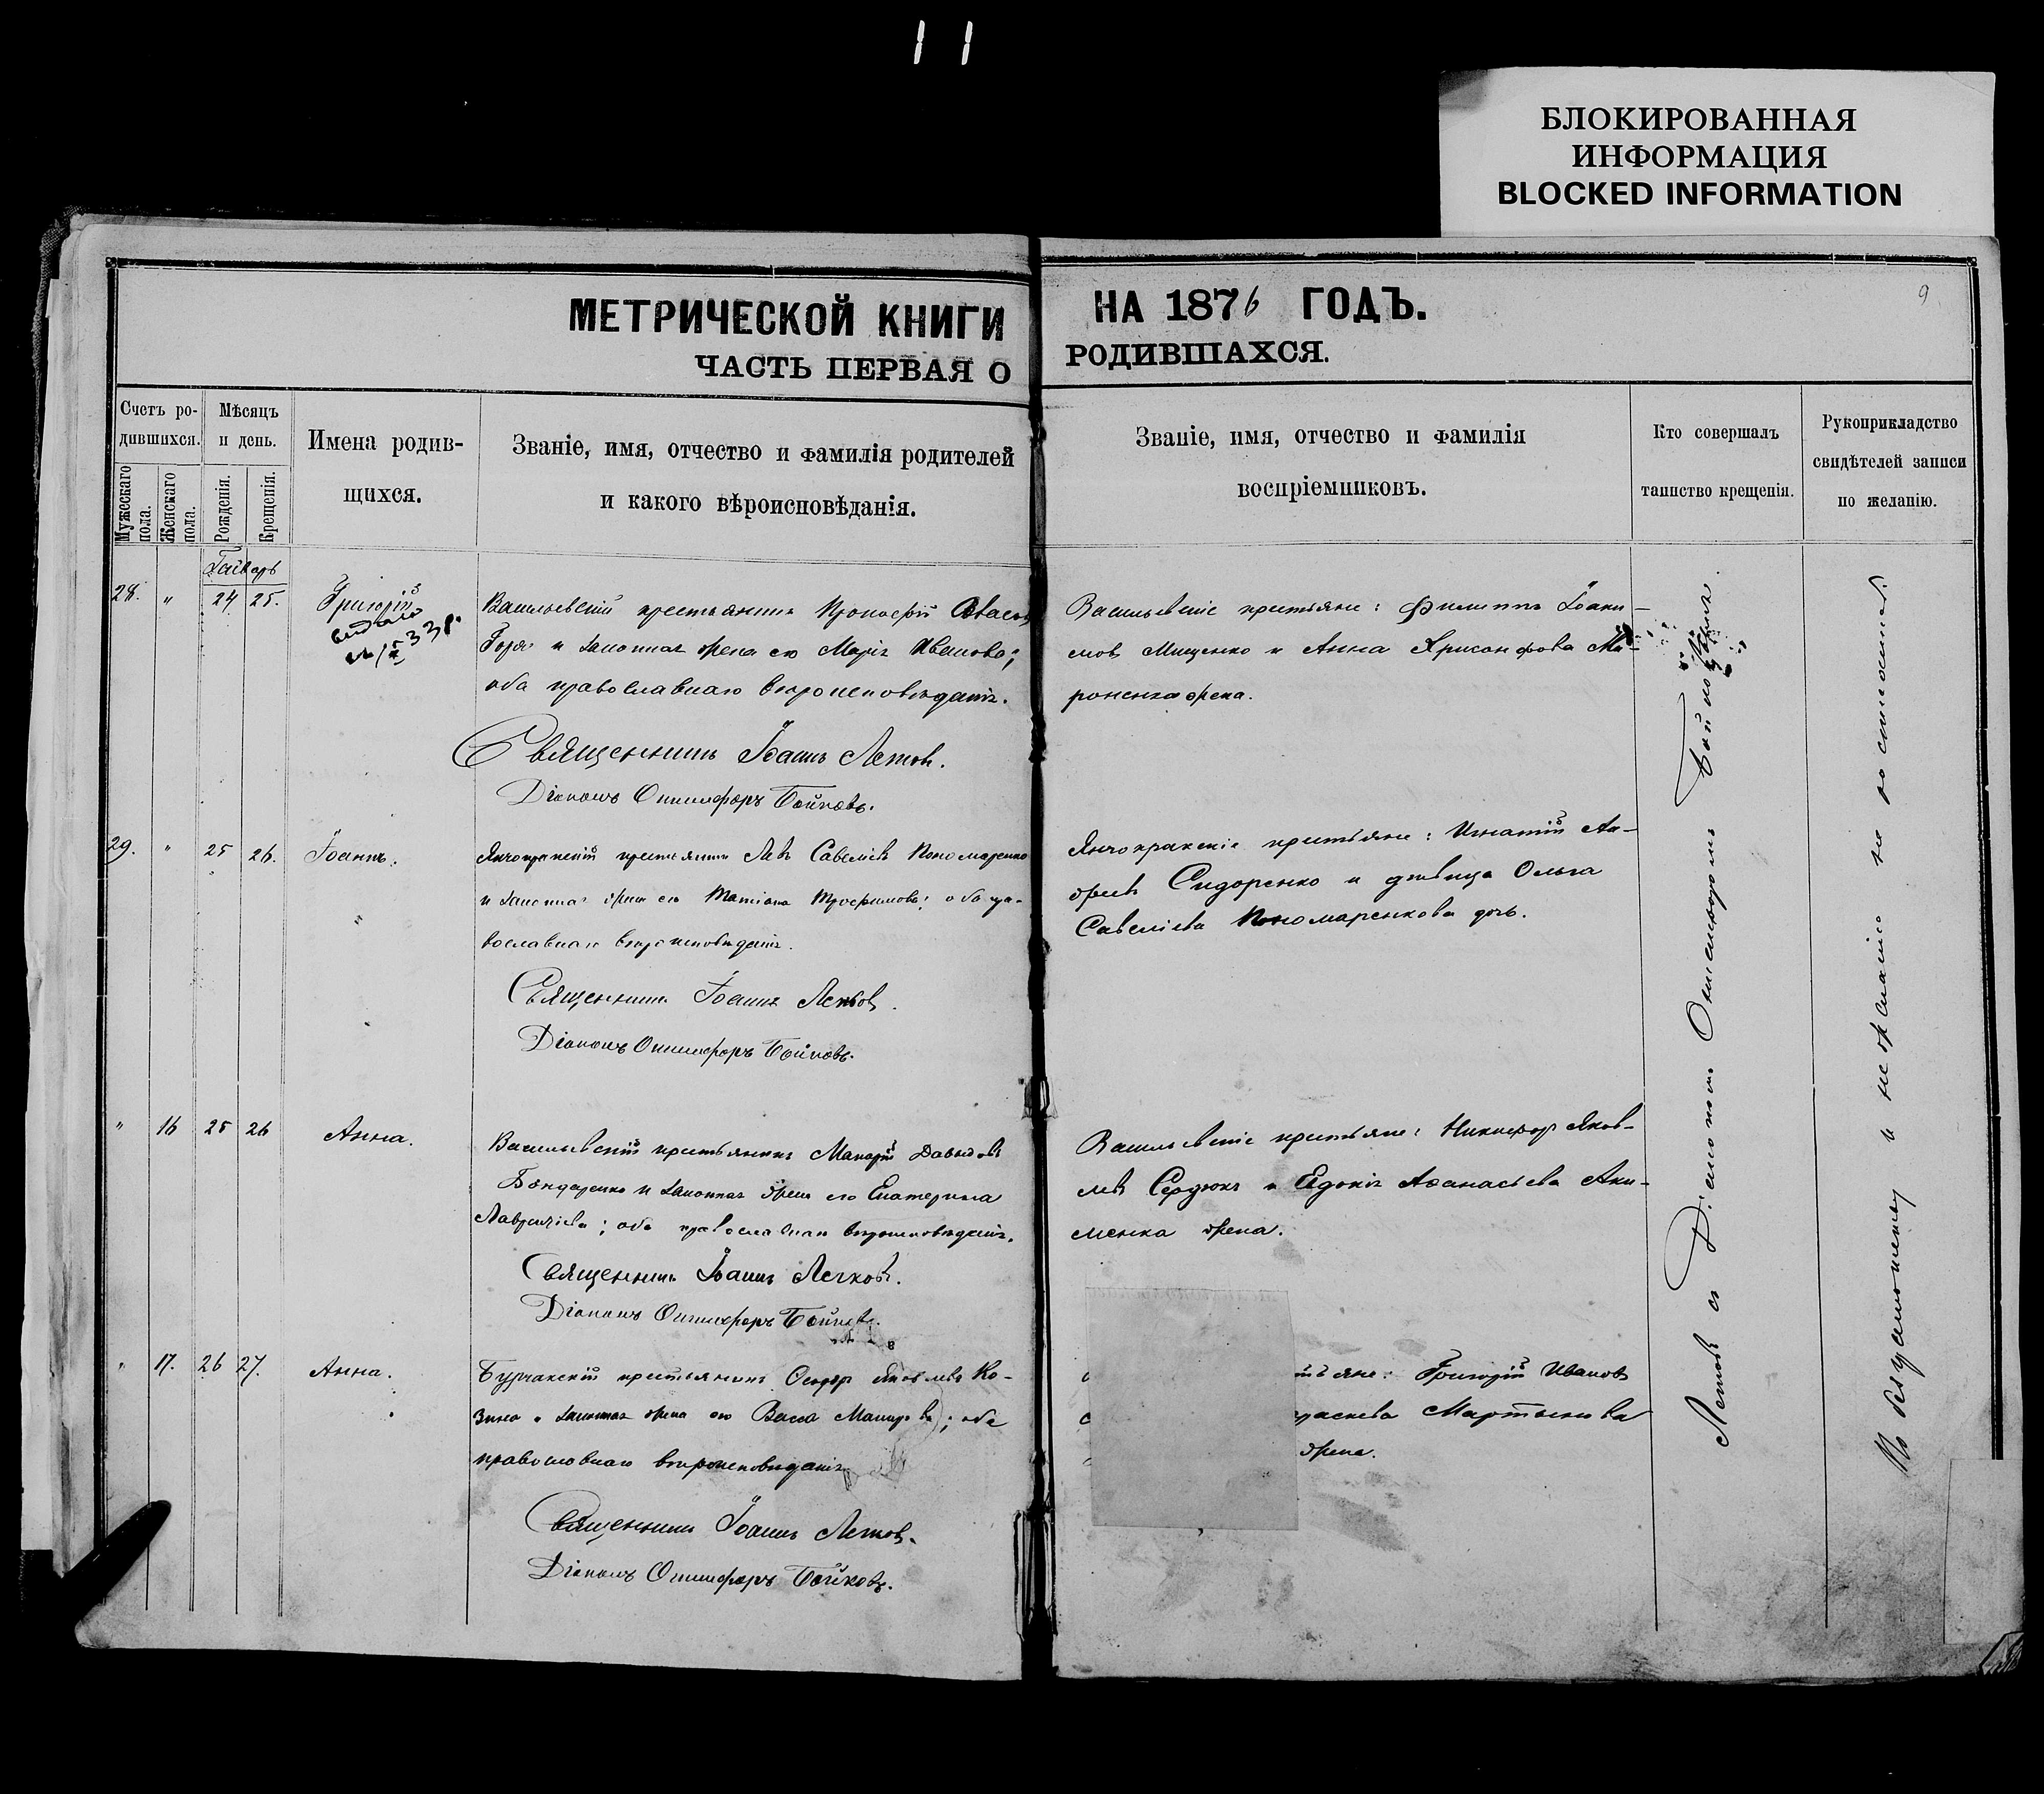 11
БЛОКИРОВАННАЯ
ИНФОРМАЦИЯ
BLOCKED INFORMATION
МЕТРИЧЕСКОЙ КНИГИ НА 1876 ГОДЪ.
9
ЧАСТЬ ПЕРВАЯ О РОДИВШАХСЯ.
Счетъ ро-
дившихся.
Мужескаго пола.
Женскаго пола.
Мѣсяцъ
и день.
Рожденія.
Крещенія.
Имена родив-
щихся.
Званіе, имя, отчество и фамилія родителей
и какого вѣроисповѣданія.
Званіе, имя, отчество и фамилія
воспріемниковъ.
Кто совершалъ
таинство крещенія.
Рукоприкладство
свидѣтелей записи
по желанію.
Январь
28. " 24 25. Григорій
Васильевскій крестьянинъ Прокофій
и законная жена его Марія Иванова;
оба православнаго вѣроисповѣданія.
Священникъ Іоаннъ
Діаконъ Онисифоръ Бойковъ.
Васильевскіе крестьяне: Филиппъ Іоаки-
мовъ Мищенко и Анна Хрисанфова Ми-
роненка жена.
29. " 25 26. Іоаннъ.
Янчокракскій крестьянинъ Левъ Савеліевъ Пономаренко
и законная жена его Татіана Трофимова; оба пра-
вославнаго вѣроисповѣданія.
Священникъ Іоаннъ
Діаконъ Онисифоръ Бойковъ.
Янчокракскіе крестьяне: Игнатій Ан-
дреевъ Сидоренко и дѣвица Ольга
Савеліева Пономаренкова дочь.
" 16 25 26 Анна.
Васильевскій крестьянинъ Макарій Давыдовъ
Бондаренко и законная жена его Екатерина
Лаврентіева; оба православнаго вѣроисповѣданія.
Священникъ Іоаннъ
Діаконъ Онисифоръ Бойковъ.
Васильевскіе крестьяне: Никифоръ Яков-
левъ Сердюкъ и Евдокія Афанасьева Аки-
менка жена.
" 17. 26 27. Анна.
Бурчакскій крестьянинъ Феодоръ Яковлевъ Ко-
и законная жена его Васса; оба
православнаго вѣроисповѣданія
Священникъ Іоаннъ
Діаконъ Онисифоръ Бойковъ.
тьяне: Григорій Ивановъ
Мартынова
жена.
съ Діакономъ Онисифоромъ Бойковымъ.
По безграмотству и нежеланію